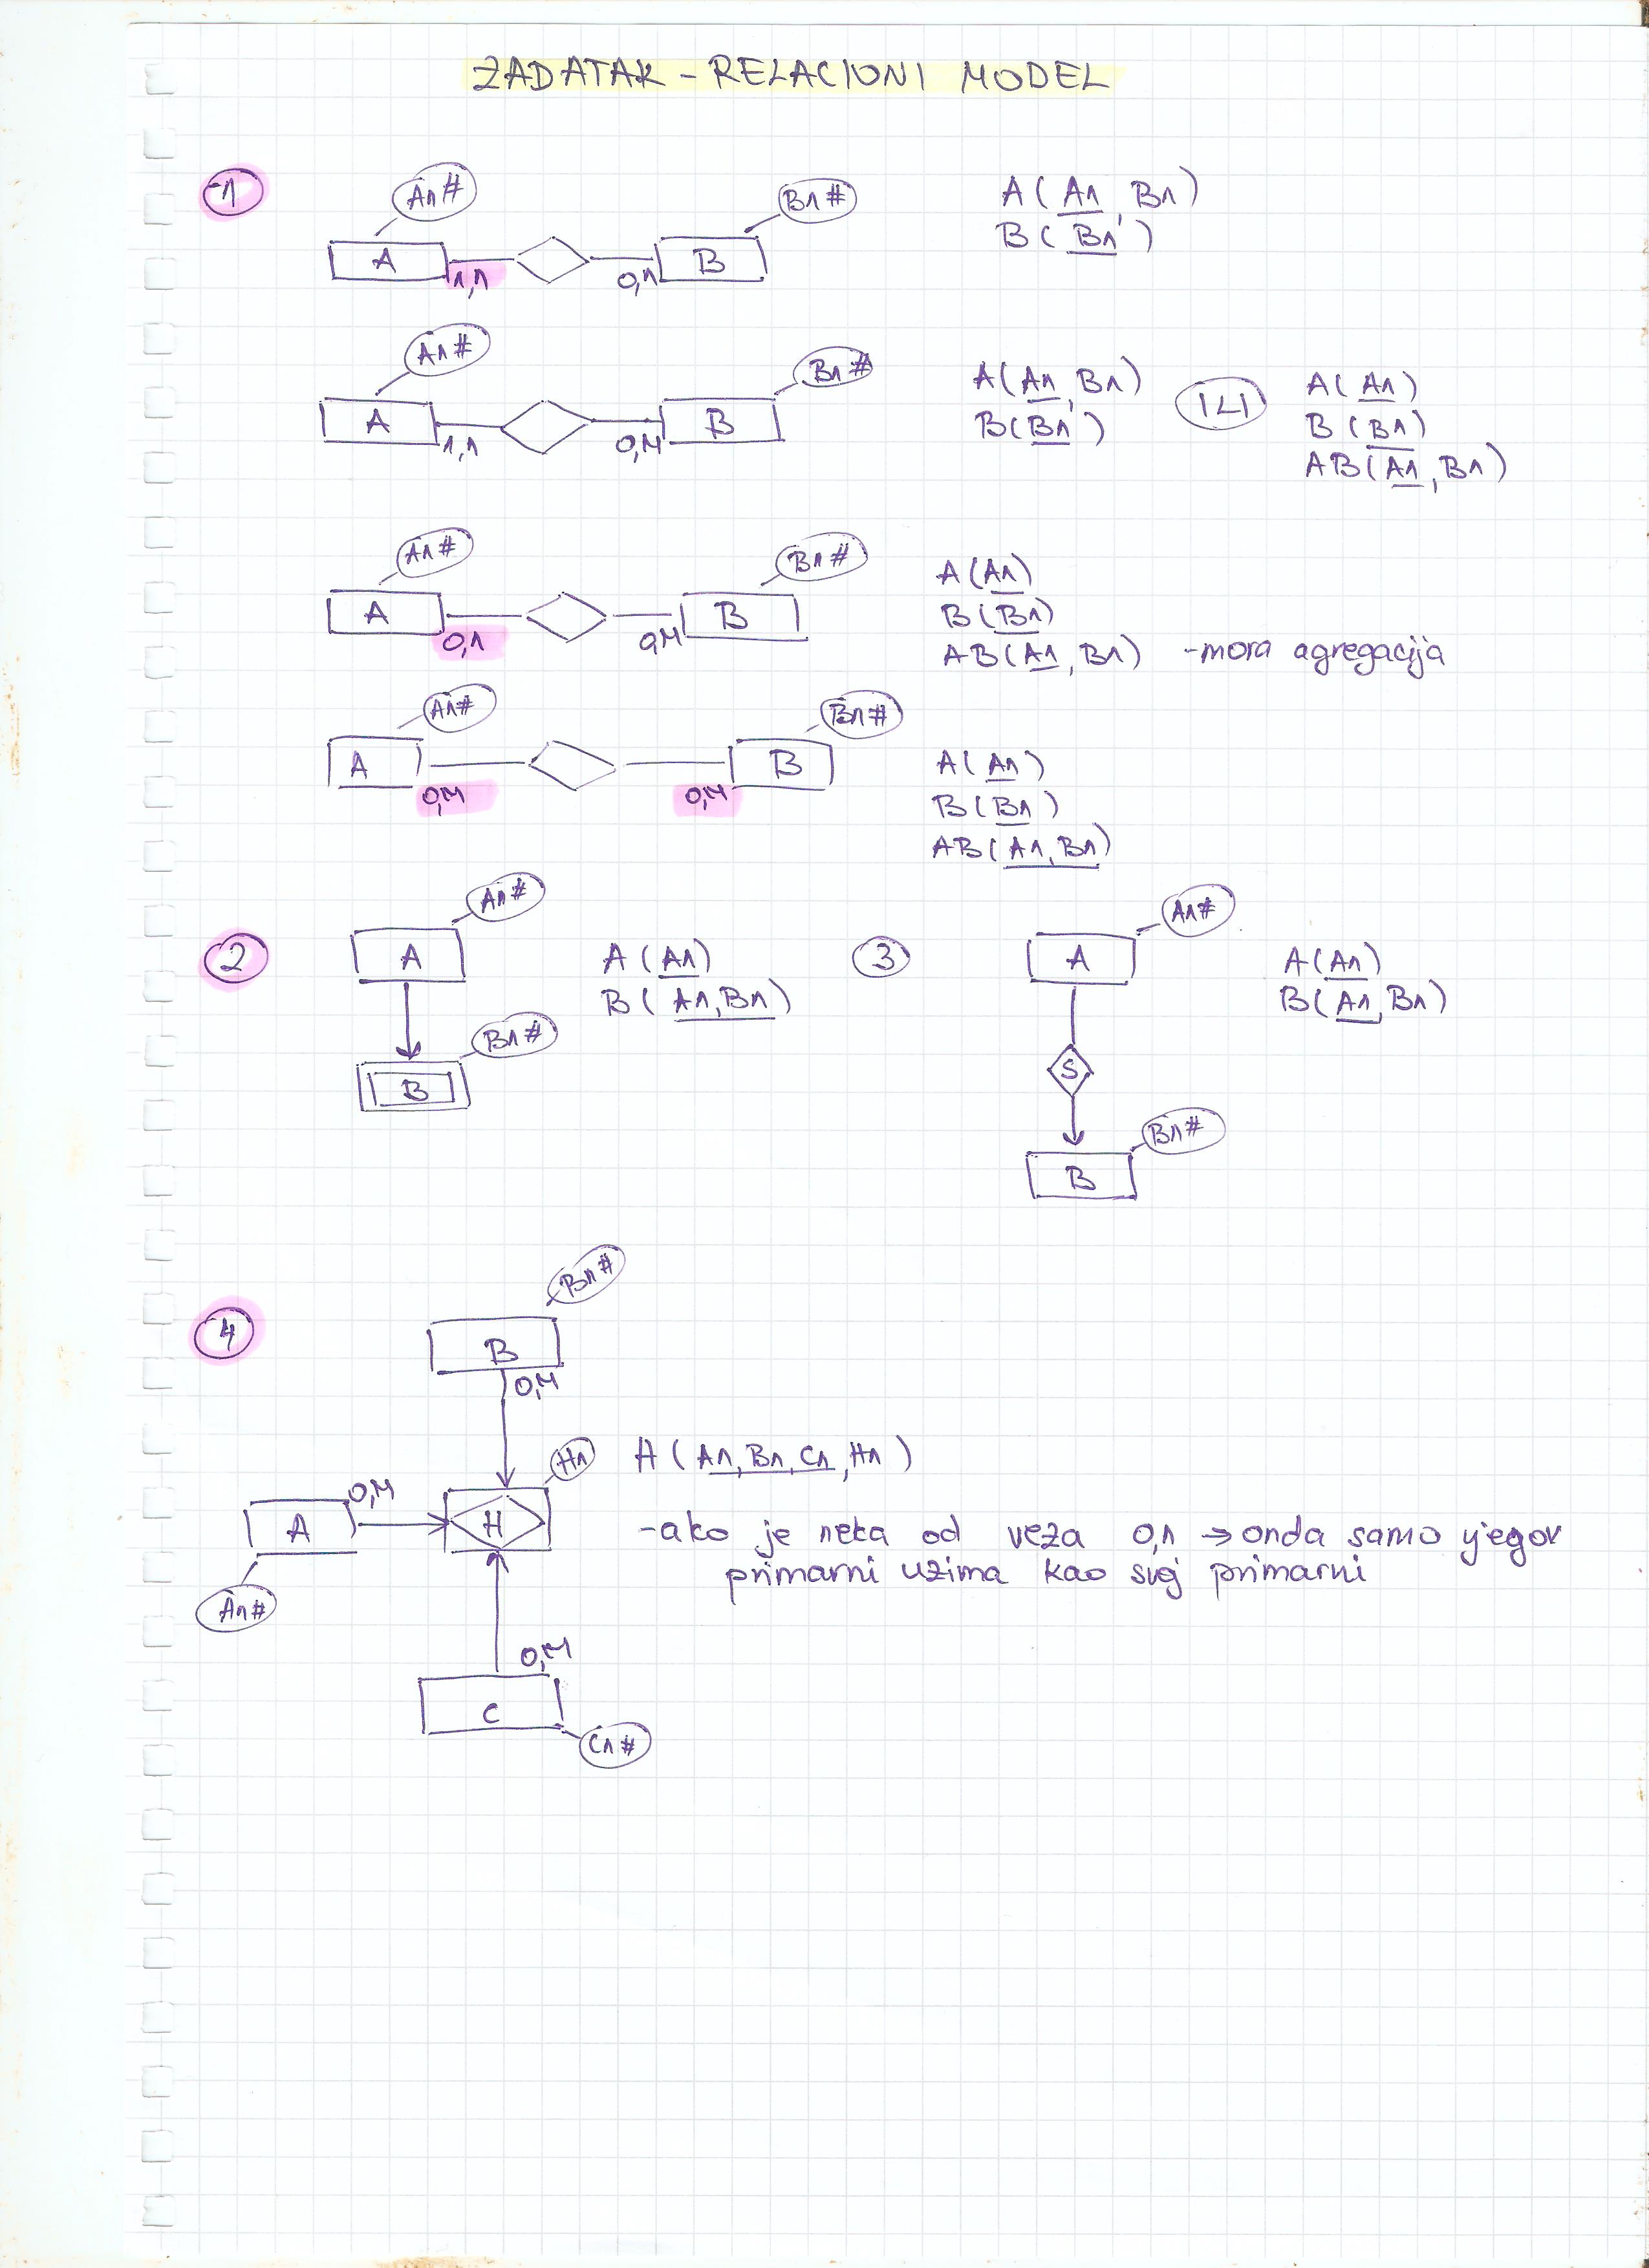 ZADATAK - RELACIONI MODEL
1
A1# B1#
A 1,1 0,1 B
A(A1, B1)
B(B1)
A1# B1#
A 1,1 0,M B
A(A1, B1)
B(B1)
ILI
A(A1)
B(B1)
AB(A1, B1)
A1# B1#
A 0,1 0,M B
A(A1)
B(B1)
AB(A1, B1) - mora agregacija
A1# B1#
A 0,M 0,M B
A(A1)
B(B1)
AB(A1, B1)
2
A1#
A
B1#
B
A(A1)
B(A1, B1)
3
A1#
A
S
B1#
B
A(A1)
B(A1, B1)
4
B1#
B
0,M
H1
H(A1, B1, C1, H1)
0,M
A H
A1#
- ako je neka od veza 0,1 → onda samo njegov
primarni uzima kao svoj primarni
0,M
C
C1#